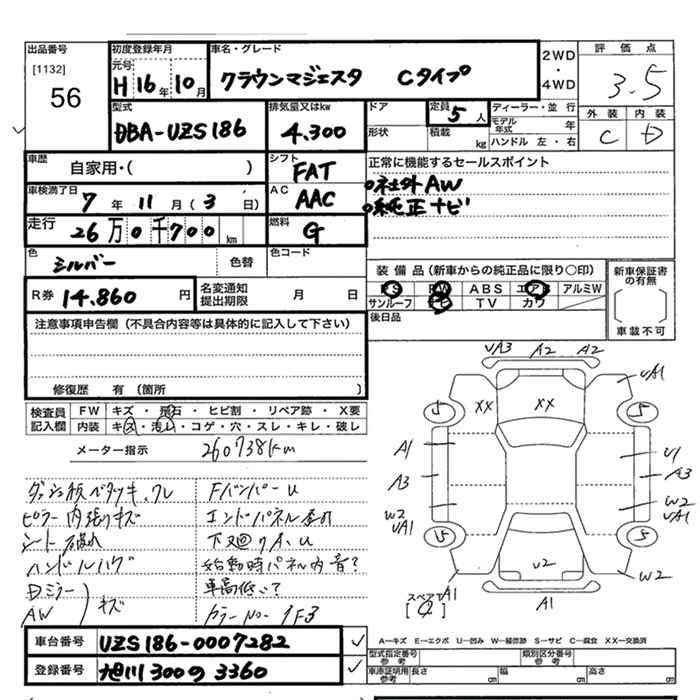 出品番号
[1132]
56
初度登録年月
元号
H 16年 10月
車名・グレード
クラウンマジェスタ Cタイプ
2WD
・
4WD
評価点
3.5
外装 内装
C D
型式
DBA-UZS186
排気量又はkw
4.300
ドア
形状
定員
5人
積載
kg
ディーラー・並行
モデル年式 年
ハンドル 左・右
車歴
自家用・( )
シフト
FAT
車検満了日
7年 11月 (3日)
AC
AAC
走行
26万0千700km
燃料
G
色
シルバー
色替
色コード
R券
14.860円
名変通知
提出期限
月 日
正常に機能するセールスポイント
o社外AW
o純正ナビ
装備品(新車からの純正品に限り○印)
PS PW ABS エアB アルミW
サンルーフ ナビ TV カワ
後日品
新車保証書
の有無
車載不可
注意事項申告欄(不具合内容等は具体的に記入して下さい)
修復歴 有(箇所 )
検査員
記入欄
FW キズ・飛石・ヒビ割・リペア跡・X要
内装 キズ・汚レ・コゲ・穴・スレ・キレ・破レ
メーター指示 260738km
ダッシュ板ベタツキ、ワレ
ピラー内張りキズ
シート破れ
ハンドルハゲ
Dミラー
AW
キズ
Fバンパーu
エンドパネル歪み
下廻りA、u
始動時パネル内音?
車高低い?
カラーNo- 1F3
車台番号 UZS186-0007282
登録番号 旭川300の3360
UA3 A2 A2
UA1
XX XX
5 5
A1 U1
A3 A3
W2 W2
UA1 UA1
5 5
U2
A1 W2
A1
スペアT
A-キズ E-エクボ U-凹み W-補修跡 S-サビ C-腐食 XX-交換済
型式指定番号
参考
類別区分番号
参考
車庫証明用
参考
長さ cm 幅 cm 高さ cm